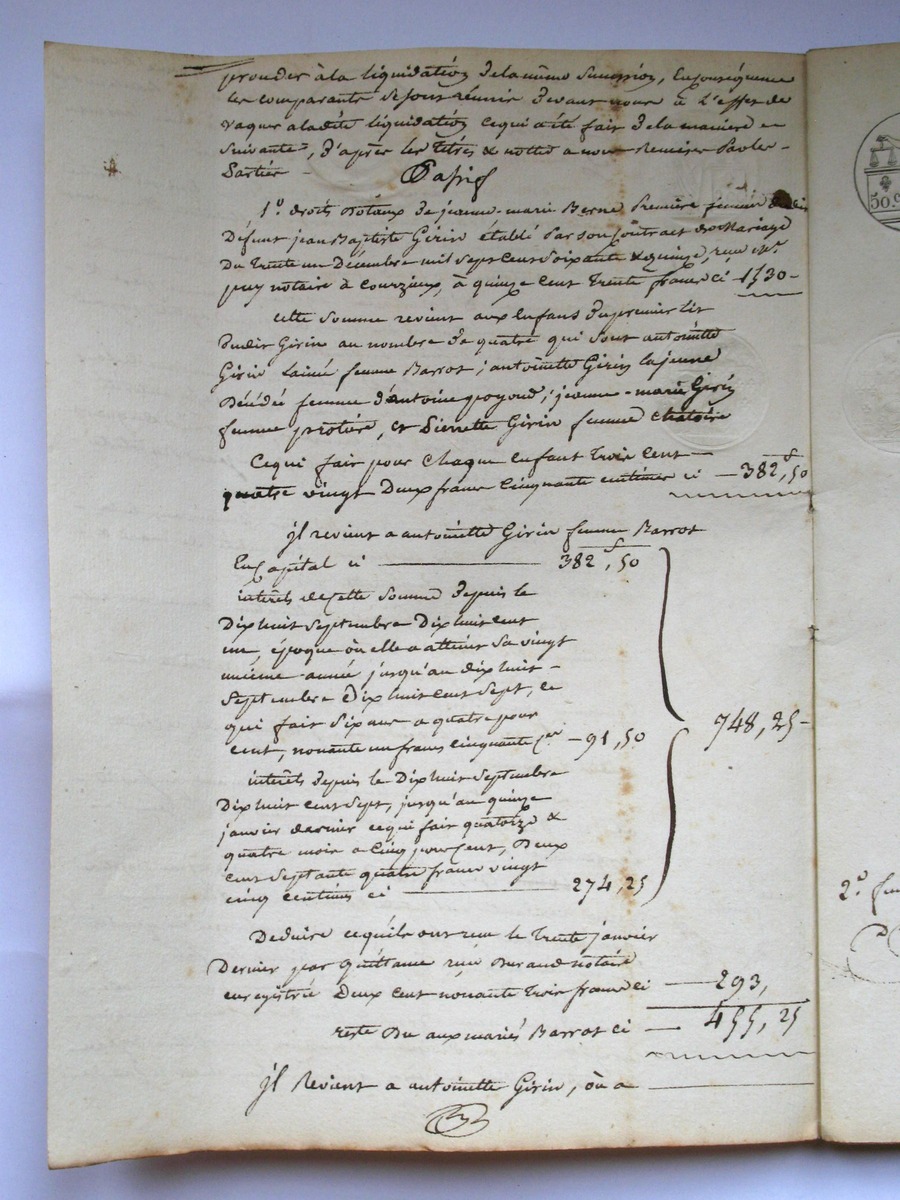 proceder à la liquidation de la même succession, En conséquence
les comparants se sont réunir devant nous à l'effet de
vaquer a ladite liquidation ce qui a été fait de la manière
suivante, d'après les titres & nottes a nous Remises par les
Parties
Passif
1º. droits dotaux de jeanne-marie Berne Première femme dudit
Défunt jean Baptiste Girin établi Par son Contract de Mariage
Du trente un Décembre mil sept cent soixante & quinze, reçu Mᵉ.
puy notaire à Courzieux, à quinze cent trente francs ci - 1530 -
cette somme revient aux Enfans du premier lit
dudit Girin au nombre de quatre qui sont antoinette
Girin Lainé femme Barrot; antoinette Girin la jeune
Décédée femme d'antoine poyard; jeanne-marie Girin
femme protière, et Pierrette Girin femme Chatoire
Ce qui fair pour chaque Enfant trois cent
quatre vingt Deux francs Cinquante centimes ci - 382f, 50
jl revient a antoinette Girin femme Barrot
En Capital ci 382f, 50
intérêts de cette somme depuis le
Dix huit septembre Dix huit cent
un, époque où elle a atteint sa vingt
unième année jusqu'au dix huit -
Septembre Dix huit cent sept, ce
qui fait six ans a quatre pour
cent, nonante un francs cinquante Cen - 91, 50
748, 25 -
intérêts depuis le Dix huit septembre
Dix huit cent sept, jusqu'au quinze
janvier dernier ce qui fait quatorze &
quatre mois a cinq pour Cent, Deux
cent septante quatre francs vingt
cinq centimes ci 274, 25
Deduire ce qu'ils ont reçu le trente janvier
Dernier par Quittance reçu Durand notaire
enregistrée Deux cent nonante trois francs ci - 293,
reste Du aux mariés Barrot ci - 455, 25
jl Revient a antoinette Girin, ou a
50.
2º.